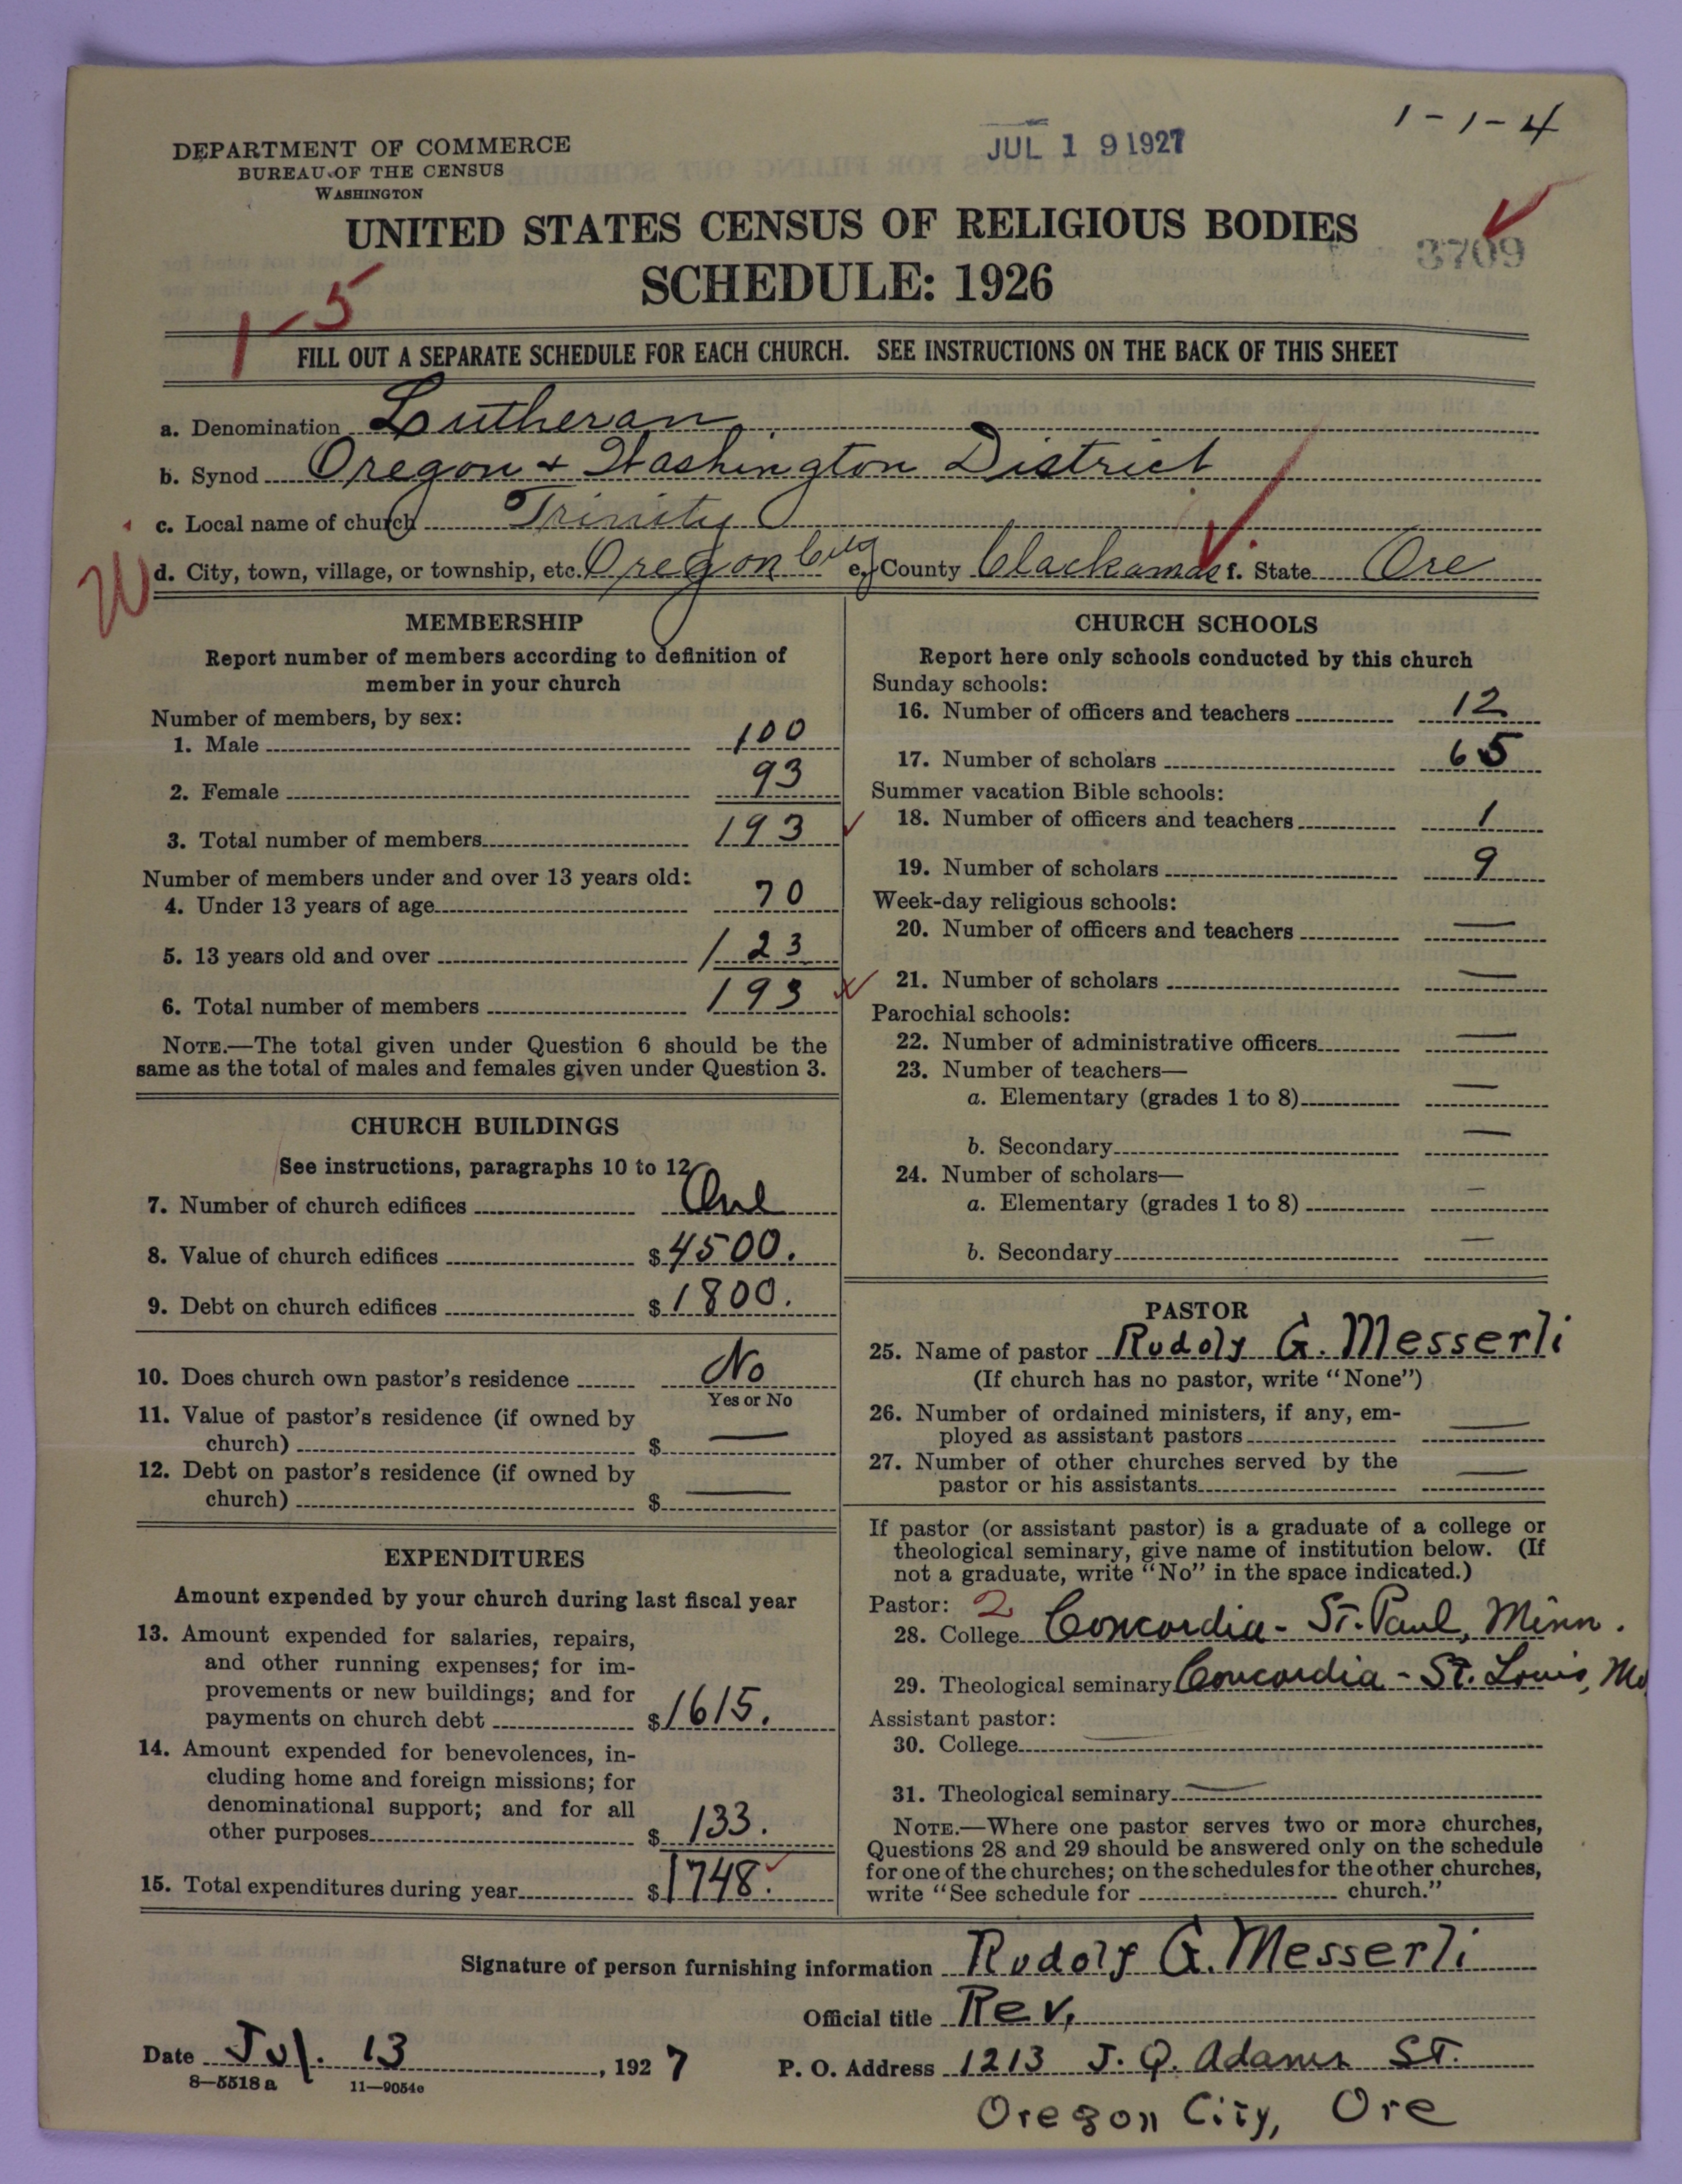 1-1-4
DEPARTMENT OF COMMERCE
BUREAU OF THE CENSUS
WASHINGTON
JUL 19 1927
UNITED STATES CENSUS OF RELIGIOUS BODIES
3709
SCHEDULE: 1926
1-5
FILL OUT A SEPARATE SCHEDULE FOR EACH CHURCH. SEE INSTRUCTIONS ON THE BACK OF THIS SHEET
a. Denomination Lutheran
b. Synod Oregon & Washington District
c. Local name of church Trinity
d. City, town, village, or township, etc. Oregon City e. County Clackamas f. State Ore
MEMBERSHIP
Report number of members according to definition of
member in your church
Number of members, by sex:
1. Male 100
2. Female 93
3. Total number of members 193
Number of members under and over 13 years old:
4. Under 13 years of age 70
5. 13 years old and over 123
6. Total number of members 193
NOTE.—The total given under Question 6 should be the
same as the total of males and females given under Question 3.
CHURCH BUILDINGS
See instructions, paragraphs 10 to 12
7. Number of church edifices One
8. Value of church edifices $4500.
9. Debt on church edifices $1800.
10. Does church own pastor's residence No
Yes or No
11. Value of pastor's residence (if owned by
church) $ —
12. Debt on pastor's residence (if owned by
church) $ —
EXPENDITURES
Amount expended by your church during last fiscal year
13. Amount expended for salaries, repairs,
and other running expenses; for im-
provements or new buildings; and for
payments on church debt $1615.
14. Amount expended for benevolences, in-
cluding home and foreign missions; for
denominational support; and for all
other purposes $ 133.
15. Total expenditures during year $1748.
CHURCH SCHOOLS
Report here only schools conducted by this church
Sunday schools:
16. Number of officers and teachers 12
17. Number of scholars 65
Summer vacation Bible schools:
18. Number of officers and teachers 1
19. Number of scholars 9
Week-day religious schools:
20. Number of officers and teachers —
21. Number of scholars —
Parochial schools:
22. Number of administrative officers —
23. Number of teachers—
a. Elementary (grades 1 to 8) —
b. Secondary —
24. Number of scholars—
a. Elementary (grades 1 to 8) —
b. Secondary —
PASTOR
25. Name of pastor Rudolf G. Messerli
(If church has no pastor, write "None")
26. Number of ordained ministers, if any, em-
ployed as assistant pastors —
27. Number of other churches served by the
pastor or his assistants —
If pastor (or assistant pastor) is a graduate of a college or
theological seminary, give name of institution below. (If
not a graduate, write "No" in the space indicated.)
Pastor: 2
28. College Concordia - St. Paul, Minn.
29. Theological seminary Concordia - St. Louis, Mo
Assistant pastor:
30. College —
31. Theological seminary —
NOTE.—Where one pastor serves two or more churches,
Questions 28 and 29 should be answered only on the schedule
for one of the churches; on the schedules for the other churches,
write "See schedule for church."
Signature of person furnishing information Rudolf G. Messerli
Official title Rev.
Date Jul. 13, 1927 P. O. Address 1213 J. Q. Adams St.
8—5518a 11—9054c
Oregon City, Ore